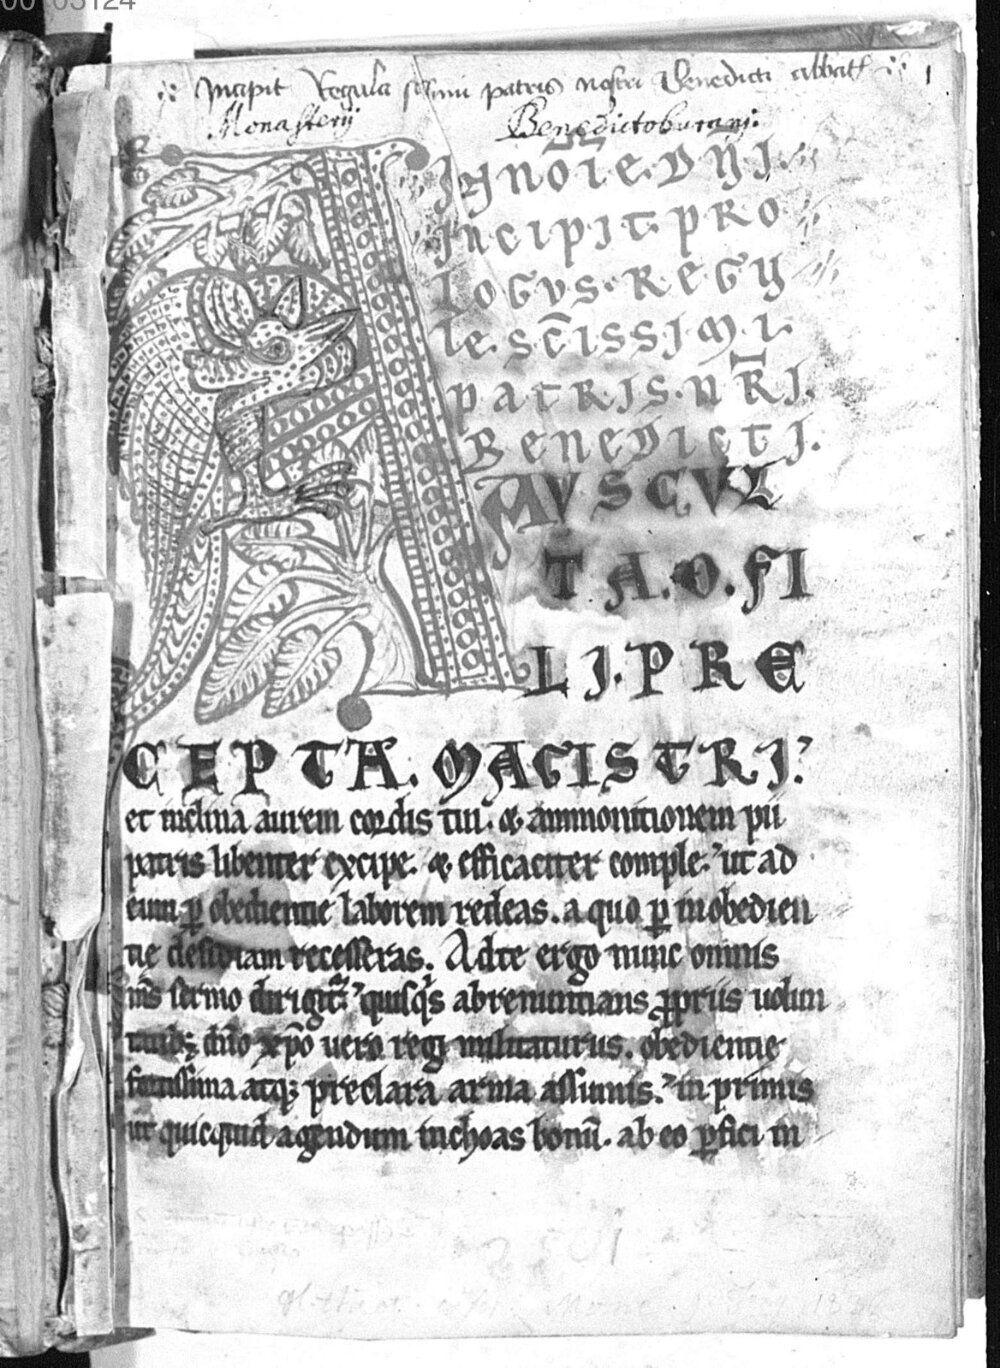 00103124
Incipit Regula sc̄issimi patris nostri Benedicti abbatis
1
Monasterij Benedictoburani.
IN NOĪE. DNI.
INCIPIT. PRO
LOGVS. REGV
LE. SC̄ISSIMI.
PATRIS. NR̄I.
BENEDICTI.
AVSCVL
TA. O. FI
LI. PRE
CEPTA. MAGISTRI.
et inclina aurem cordis tui. & ammonitionem pii
patris libenter excipe. & efficaciter comple. ut ad
eum ꝑ obedientie laborem redeas. a quo ꝑ inobedien
tie desidiam recesseras. Adte ergo nunc omnis
m̄s sermo dirigit᷑. quisq̇s abrenuntians ꝓpriis uolun
tatibꝫ dn̄o xp̄o uero regi militaturus. obedientie
fortissima atqꝫ preclara arma assumis. in primis
ut quicquid agendum inchoas bonū. ab eo ꝑfici in